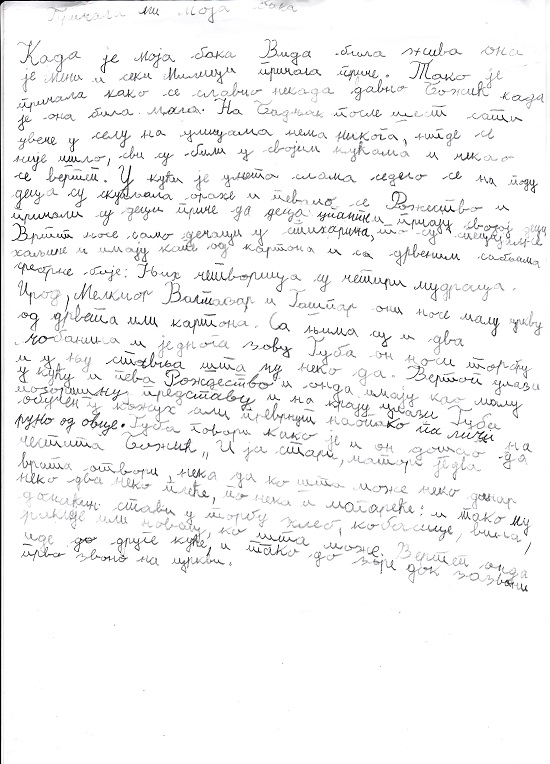 Причала ми моја бака
Када је моја бака Вида била жива она
је мени и секи Милици причала приче. Тако је
причала како се славио некада давно Божић када
је она била мала. На Бадњак после шест сати
увече у селу на улицама нема никога, нигде се
није ишло, сви су били у својим кућама и чекао
се вертеп. У кући је унета слама седело се на поду
деца су скупљала орахе и певало се Рождество и
причали су деци приче да деца
Вертеп носе само дечаци у стихарима, то су
хаљине и имају капе од картона и са дрвеним сабљама
сребрне боје: Њих четворица су четири мудраца.
Ирод, Мелкиор Валтазар и Гашпар они носе малу цркву
од дрвета или картона. Са њима су и два
чобанина и једнога зову Губа он носи торбу
и у њу стављa шта му неко да. Вертеп улази
у кућу и пева Рождество и онда имају као малу
позоришну представу и на крају улази Губа
обучен у кожух али преврнут наопако па личи на
руно од овце. Губа говори како је и он дошао да
честита Божић „И ја стари, матори једва
врата отвори, нека да ко шта може неко динар
неко два неко плеће, по нека и магареће: и тако му
домаћин стави у торбу хлеб, кобасице, вина,
ракије или новац, ко шта може. Вертеп онда
иде до друге куће, и тако до зоре док зазвони
прво звоно на цркви.